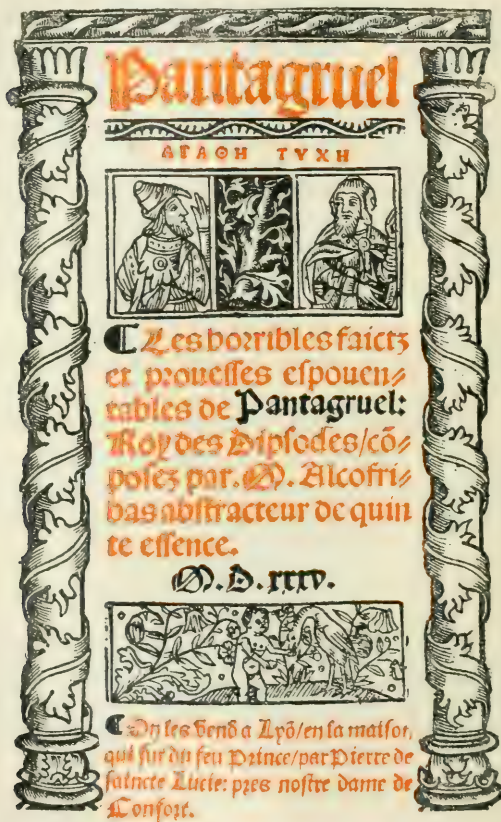 Pantagruel
ΑΓΑΘΗ ΤΥΧΗ
¶ Les horribles faictz
et prouesses espouen⸗
tables de Pantagruel:
Roy des Dipsodes/cõ⸗
posez par. M. Alcofri⸗
bas abstracteur de quin
te essence.
M.D.xxxv.
¶ On les vend a Lyõ/en la maison,
qui fut du feu Prince/par Pierre de
saincte Lucie: pres nostre dame de
Confort.